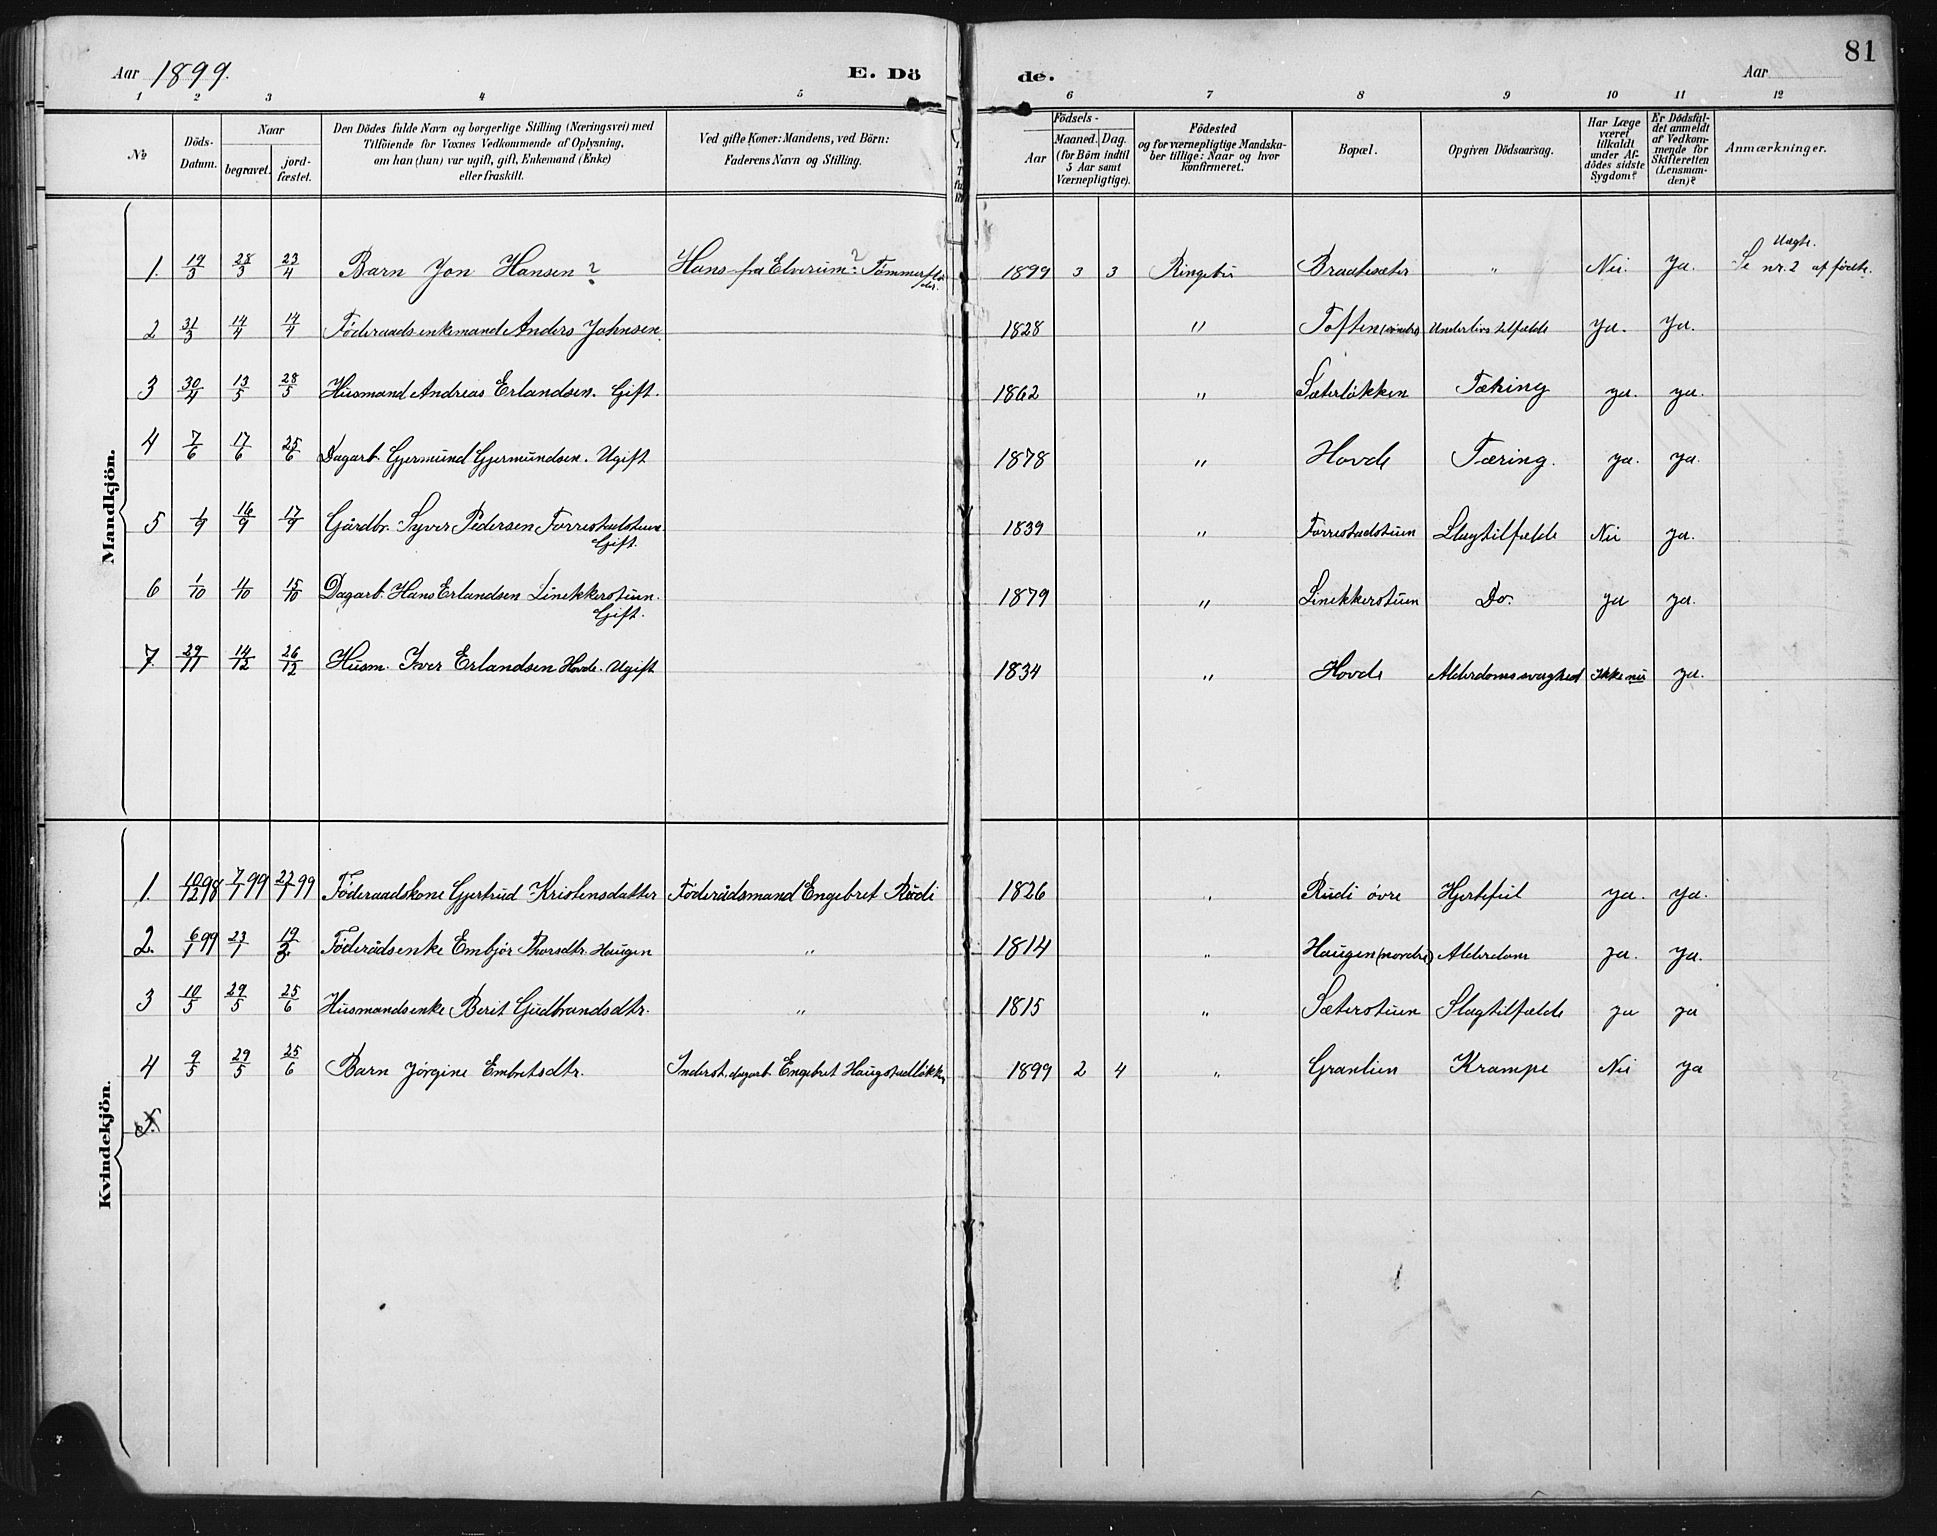 Aar 1899. E. Dö de. Aar 81
1 2 3 4 5 6 7 8 9 10 11 12
№ Döds-Datum. Naar begravet. jordfæstet. Den Dödes fulde Navn og borgerlige Stilling (Næringsvei) med Tilföiende for Voxnes Vedkommende af Oplysning, om han (hun) var ugift, gift, Enkemand (Enke) eller fraskilt. Ved gifte Koner: Mandens, ved Börn: Faderens Navn og Stilling. Födsels- Aar Maaned. Dag. (for Börn indtil 5 Aar samt Værnepligtige). Födested og for værnepligtige Mandskaber tillige: Naar og hvor konfirmeret. Bopæl. Opgiven Dödsaarsag. Har Læge været tilkaldt under Afdödes sidste Sygdom? Er Dödsfaldet anmeldt af Vedkommende for Skifteretten (Lensmanden)? Anmærkninger.
Mandkjön.
1. 19/3 28/3 23/4 Barn Jon Hansen? Hans fra Elverum? Tømmerflöder. 1899 3 3 Ringebu Braatesæter " Nei. Ja. Uægte. Se nr. 2 af fødte.
2 31/3 14/4 14/4 Föderaadsenkemand Anders Johnsen. 1828 " Toften (nordre) Underlivstilfælde Ja. Ja.
3 30/4 13/5 28/5 Husmand Andreas Erlandsen. Gift. 1862 " Sæterløkken Tæring ja. ja.
4 7/6 17/6 25/6 Dagarb. Gjermund Gjermundsen. Ugift 1878 " Hovde Tæring. ja. ja.
5 1/9 16/9 17/9 Gårdbr. Syver Pedersen Forrestadstuen Gift. 1839 " Forrestadstuen Slagtilfælde Nei ja.
6 1/10 11/10 15/10 Dagarb. Hans Erlandsen Linekkerstuen. Gift. 1879 " Linekkerstuen Do. ja ja.
7. 29/11 14/12 26/12 Husm. Iver Erlandsen Hovde. Ugift 1834 " Hovde Alderdomssvaghed Ikke nei ja.
Kvindekjön.
1. 10/12 98 7/1 99 22/1 99 Föderaadskone Gjertrud Kristensdatter Föderådsmand Engebret Rudi 1826 " Rudi øvre Hjertefeil ja. ja.
2. 6/1 99 23/1 19/3. Föderådsenke Embjør Thorsdtr. Haugen " 1814 " Haugen (nordre) Alderdom ja. ja.
3 10/5 29/5 25/6 Husmandsenke Berit Gudbrandsdtr. " 1815 " Sæterstuen Slagtilfælde ja ja
4 9/5 29/5 25/6 Barn Jørgine Embretsdtr. Inderst, dagarb. Engebret Haugstadløkken 1899 2 4 " Granlien Krampe Nei ja
5.